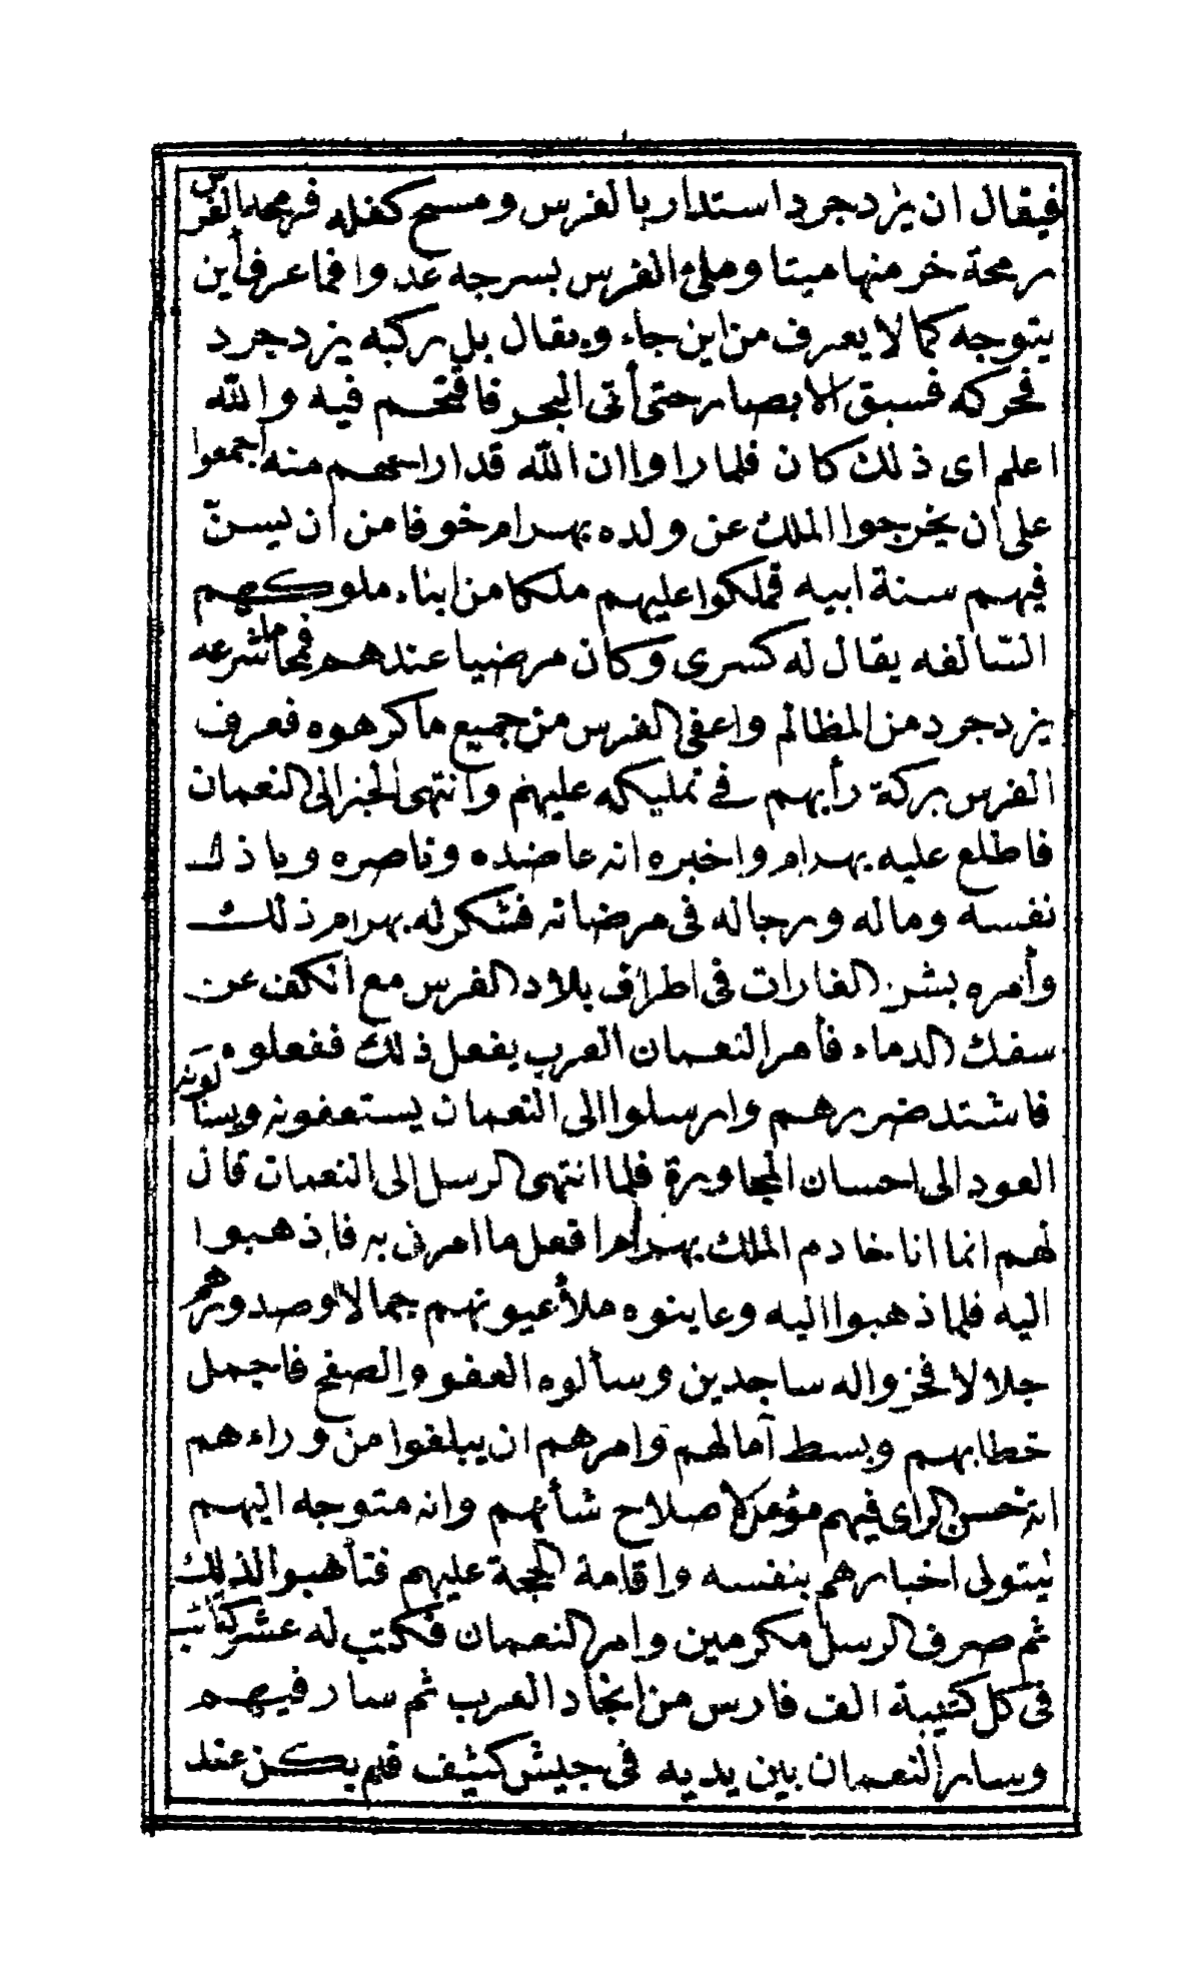 فيقال ان يزدجرد استدار بالفرس ومسح كفله فرمحه الفرس
رمحة خر منها ميتا وملئ الفرس بسرجه عدوا فما عرف أين
يتوجه كما لا يعرف من اين جاء ويقال بل ركبه يزدجرد
فحركه فسبق الابصار حتى أتى البحر فاقتحم فيه والله
اعلم اى ذلك كان فلما راوا ان الله قد اراحهم منه اجمعوا
على ان يخرجوا الملك عن ولده بهرام خوفا من ان يسنّ
فيهم سنة ابيه فملكوا عليهم ملكا من ابناء ملوكهم
السّالفه يقال له كسرى وكان مرضيا عندهم فمحا ما شرعه
يزدجرد من المظالم واعفى الفرس من جميع ما كرهوه فعرف
الفرس بركة رأيهم في تمليكه عليهم وانتهى الخبر الى النعمان
فاطلع عليه بهرام واخبره انه عاضده وناصره وباذل
نفسه وماله ورجاله فى مرضاته فشكر له بهرام ذلك
وأمره بشن الغارات فى اطراف بلاد الفرس مع الكف عن
سفك الدماء فأمر النعمان العرب بفعل ذلك ففعلوه
فاشتد ضررهم وارسلوا الى النعمان يستعفونه ويسئالونه
العود الى احسان المجاورة فلما انتهى الرسل الى النعمان قال
لهم انما انا خادم الملك بهرام افعل ما امرنى به فاذهبوا
اليه فلما ذهبوا اليه وعاينوه ملأ عيونهم جمالا وصدورهم
جلالا فخروا له ساجدين وسألوه العفو والصفح فاجمل
خطابهم وبسط آمالهم وامرهم ان يبلغوا من وراءهم
انه حسن الراى فيهم مؤمل لاصلاح شأنهم وانه متوجه اليهم
ليتولى اخبارهم بنفسه واقامة الحجة عليهم فتأهبوا لذلك
ثم صرف الرسل مكرمين وامر النعمان فكتب له عشر كتائب
فى كل كتيبة الف فارس من انجاد العرب ثم سار فيهم
وسار النعمان بين يديه فى جيش كثيف فلم يكن عند